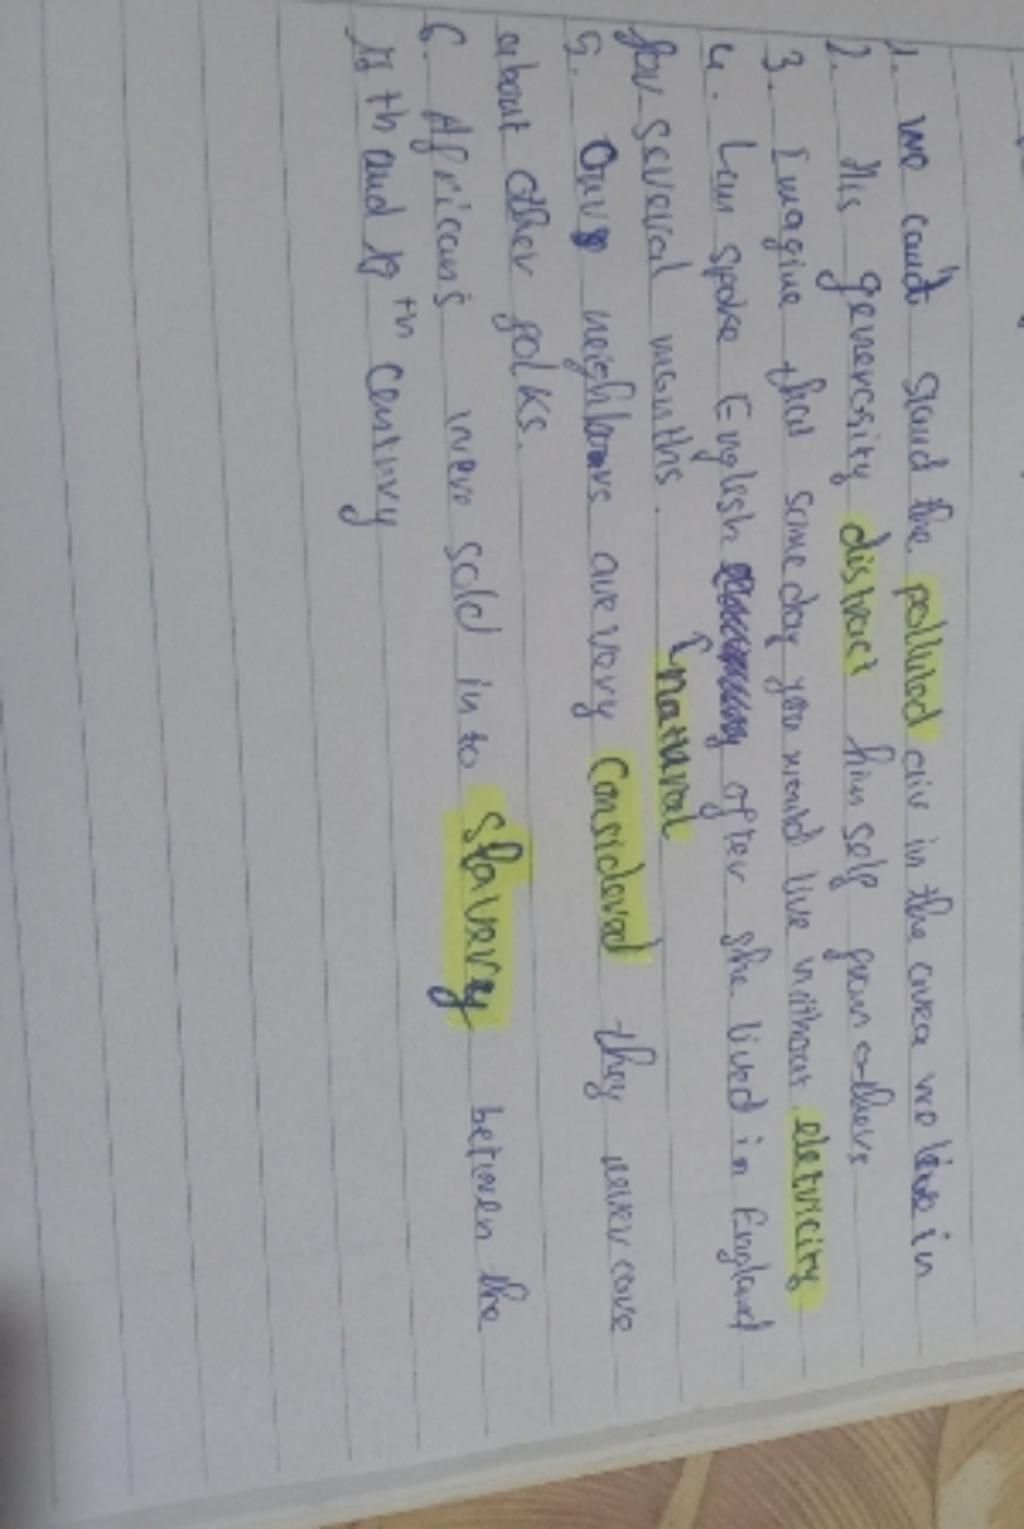 1. we can't stand the polluted air in the area we live in
2. His generosity distract him self from others
3. Imagine that some day you would live without eletricity
4. Lan spoke English after she lived in England
for several months. natural
5. Our neighbours are very Considered they never care
about other folks.
6. African's were sold in to Slavery between the
and 19th century